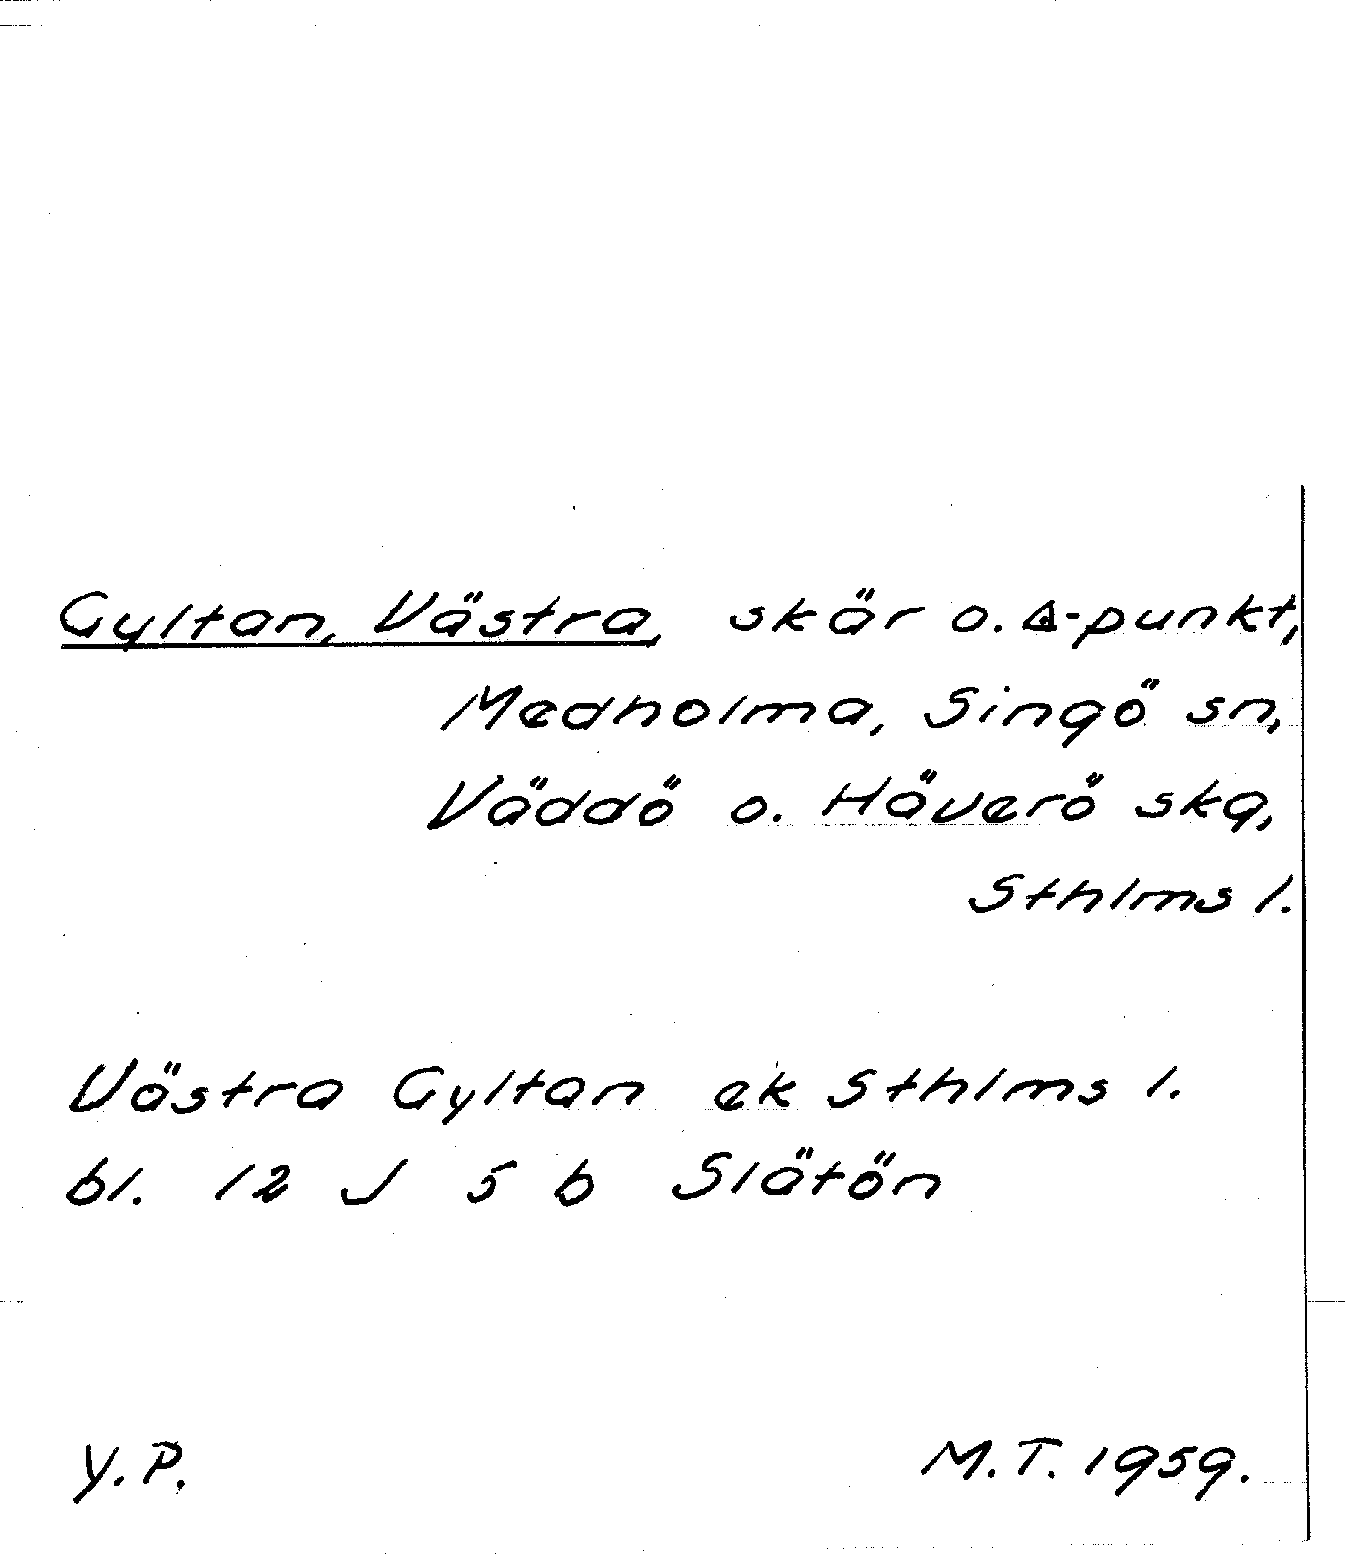 Gyltan, Västra, skär o. △-punkt,
Medholma, Singö sn,
Väddö o. Häverö skg,
Sthlms l.
Västra Gyltan ek Sthlms l.
bl. 12 J 5 b Slätön
Y.P. M.T. 1959.